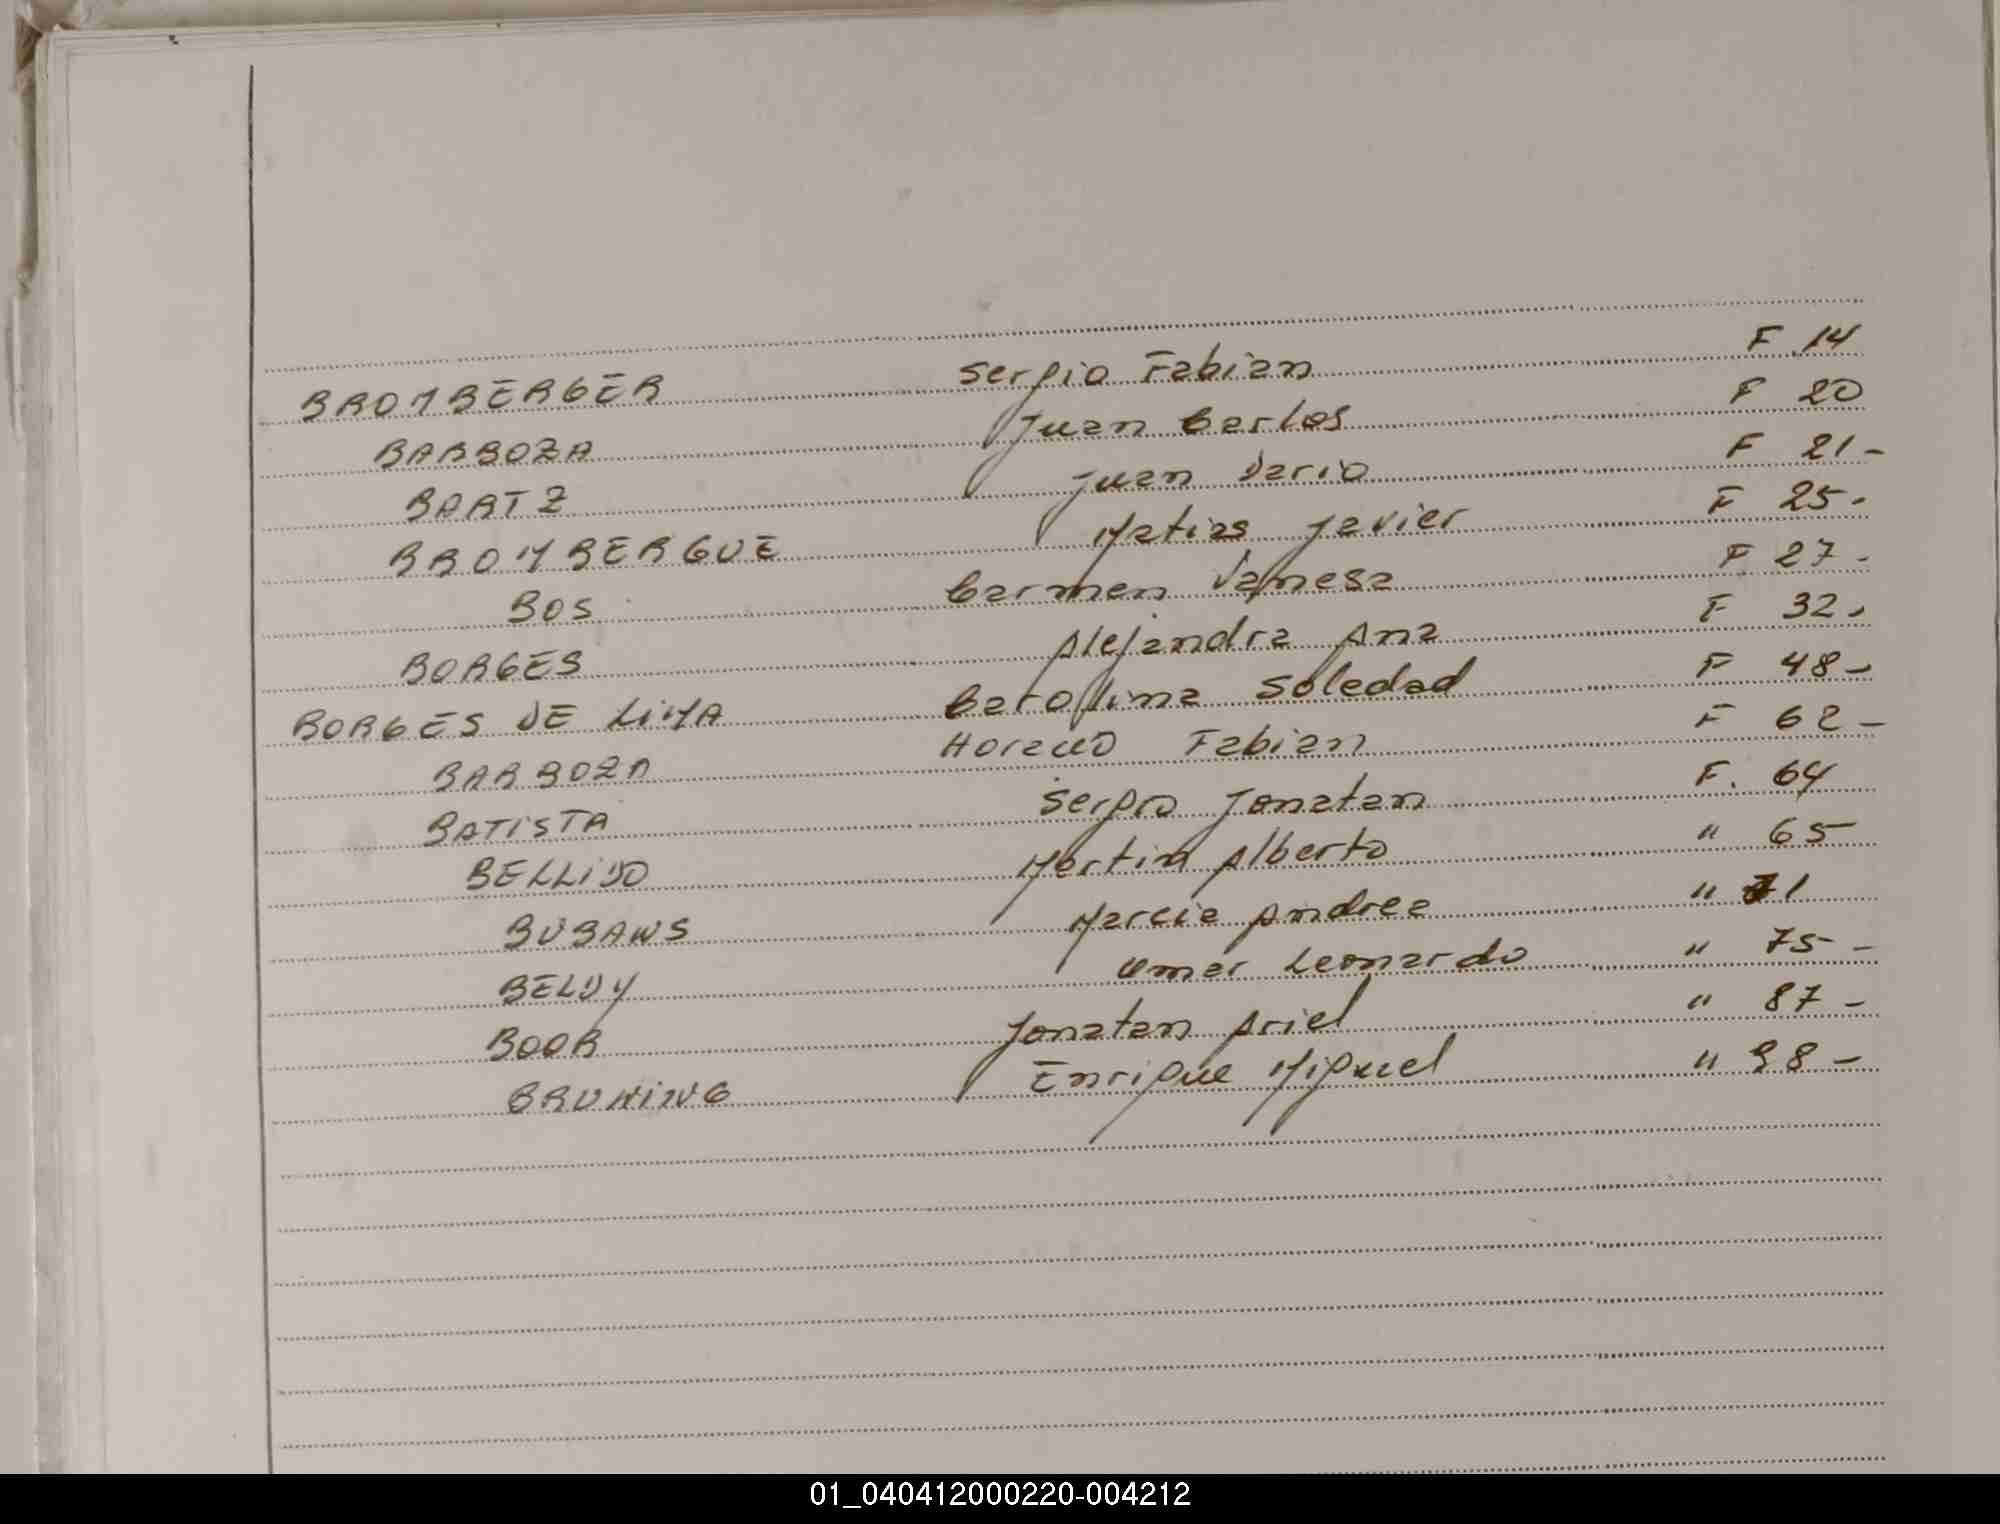 BROMBERGER Sergio Fabian F. 14
BARBOZA Juan Carlos F 20
BARTZ Juan Dario F 21-
BROMBERGUE Matias Javier F 25-
BOS Carmen Vanesa F 27-
BORGES Alejandra Ana F 32-
BORGES DE LIMA Carolina Soledad F 48-
BARBOZA Horacio Fabian F 62-
BATISTA Sergio Jonatan F. 64
BELLIDO Martin Alberto " 65-
BUBANS Marcia Andrea " 71
BELDY Omar Leonardo " 75-
BOOR Jonatan Ariel " 87-
BRUNING Enrique Miguel " 98-
01_040412000220-004212